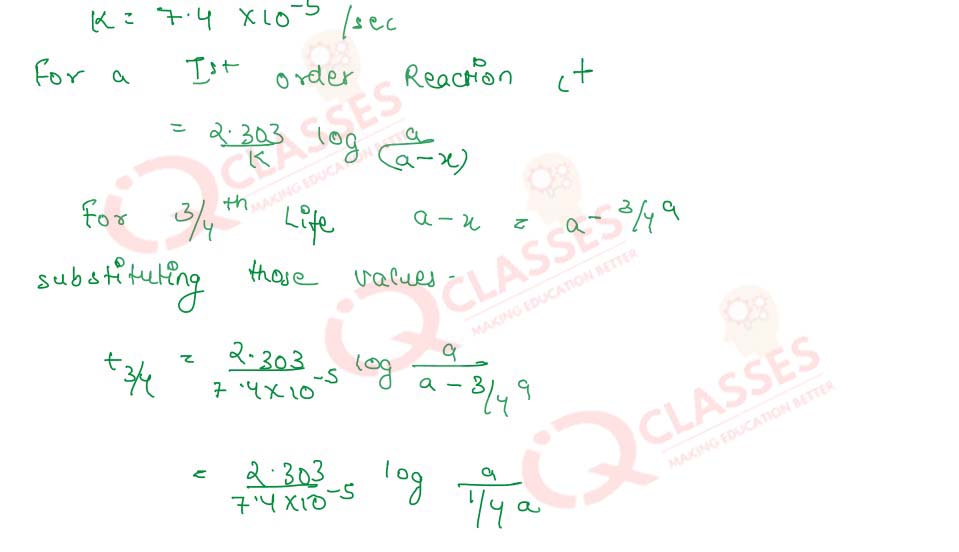 K = 7.4 ×10⁻⁵ /sec
For a Ist order Reaction (t
= 2.303/K log a/(a-x)
For 3/4th Life a-x = a - 3/4 a
substituting those values -
t3/4 = 2.303/7.4×10⁻⁵ log a/a - 3/4 a
= 2.303/7.4×10⁻⁵ log a/1/4 a
iQ CLASSES
MAKING EDUCATION BETTER
iQ CLASSES
MAKING EDUCATION BETTER
iQ CLASSES
MAKING EDUCATION BETTER